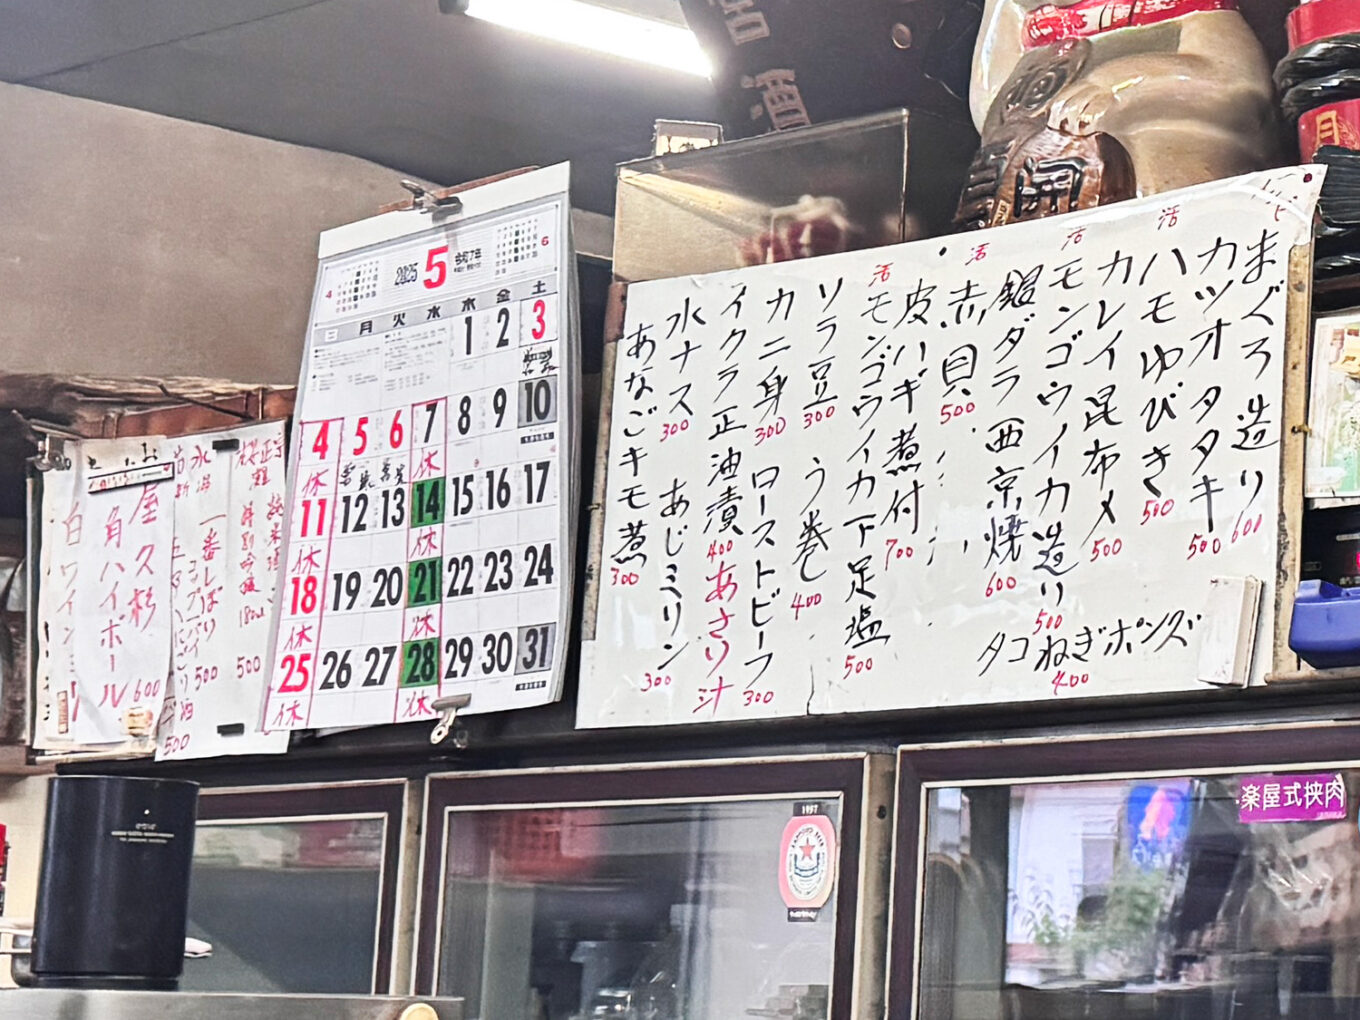 トビ
まぐろ造り 600
カツオタタキ 500
活
ハモゆびき 500
カレイ昆布〆 500
活
モンゴウイカ造り 500
銀ダラ西京焼 600
活
赤貝 500
皮ハギ煮付 700
活
モンゴウイカ下足塩 500
ソラ豆 300
う巻 400
カニ身 300
ローストビーフ 300
イクラ正油漬 400
あさり汁
水ナス 300
あじミリン 300
あなごキモ煮 300
タコねぎポンズ 400
2025 5 令和7年
4
6
日 月 火 水 木 金 土
1 2 3
4 5 6 7 8 9 10
休 休
11 12 13 14 15 16 17
休 休
18 19 20 21 22 23 24
休 休
25 26 27 28 29 30 31
休 休
純米酒
特別吟醸 180ml 500
一番しぼり 500
にごり酒 500
屋久杉 600
角ハイボール
白ワイン
酒
開
月
1957
楽屋式挟肉